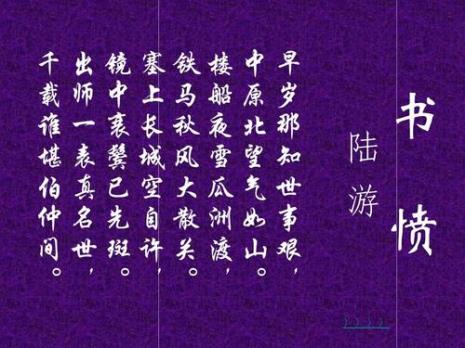 书愤
陆游
早岁那知世事艰，
中原北望气如山。
楼船夜雪瓜洲渡，
铁马秋风大散关。
塞上长城空自许，
镜中衰鬓已先斑。
出师一表真名世，
千载谁堪伯仲间。